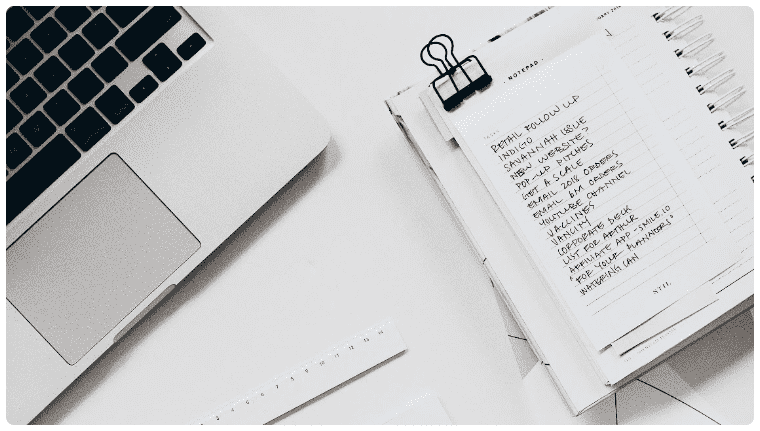 NOTEPAD
RETAIL FOLLOW UP
INDIGO
SAVANNAH ISSUE
NEW WEBSITE?
POP-UP PITCHES
GET A SCALE
EMAIL 2018 ORDERS
EMAIL 6M ORDERS
YOUTUBE CHANNEL
VACCINES
VANCITY
CORPORATE DECK
LIST FOR ARTHUR
AFFILIATE APP - SMILE.IO
"FOR YOUR PLANNERS"
WATERING CAN
STIL
2 3 4 5 6 7 8 9 10 11 12 13 14